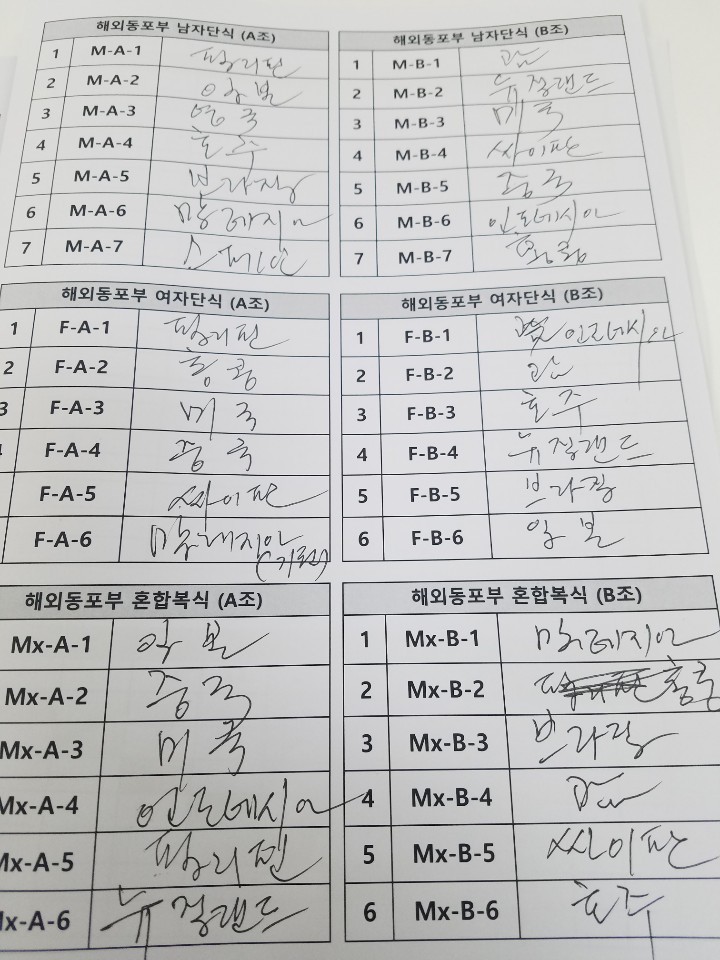 해외동포부 남자단식 (A조)
1 M-A-1 필리핀
2 M-A-2 일본
3 M-A-3 영국
4 M-A-4 호주
5 M-A-5 브라질
6 M-A-6 말레지아
7 M-A-7 스페인
해외동포부 남자단식 (B조)
1 M-B-1 괌
2 M-B-2 뉴질랜드
3 M-B-3 미국
4 M-B-4 싸이판
5 M-B-5 중국
6 M-B-6 인도네시아
7 M-B-7 홍콩
해외동포부 여자단식 (A조)
1 F-A-1 필리핀
2 F-A-2 홍콩
3 F-A-3 미국
F-A-4 중국
F-A-5 싸이판
F-A-6 말레지아
해외동포부 여자단식 (B조)
1 F-B-1 인도네시아
2 F-B-2 괌
3 F-B-3 호주
4 F-B-4 뉴질랜드
5 F-B-5 브라질
6 F-B-6 일본
해외동포부 혼합복식 (A조)
Mx-A-1 일본
Mx-A-2 중국
Mx-A-3 미국
Mx-A-4 인도네시아
Mx-A-5 필리핀
Mx-A-6 뉴질랜드
해외동포부 혼합복식 (B조)
1 Mx-B-1 말레지아
2 Mx-B-2 홍콩
3 Mx-B-3 브라질
4 Mx-B-4 괌
5 Mx-B-5 싸이판
6 Mx-B-6 호주